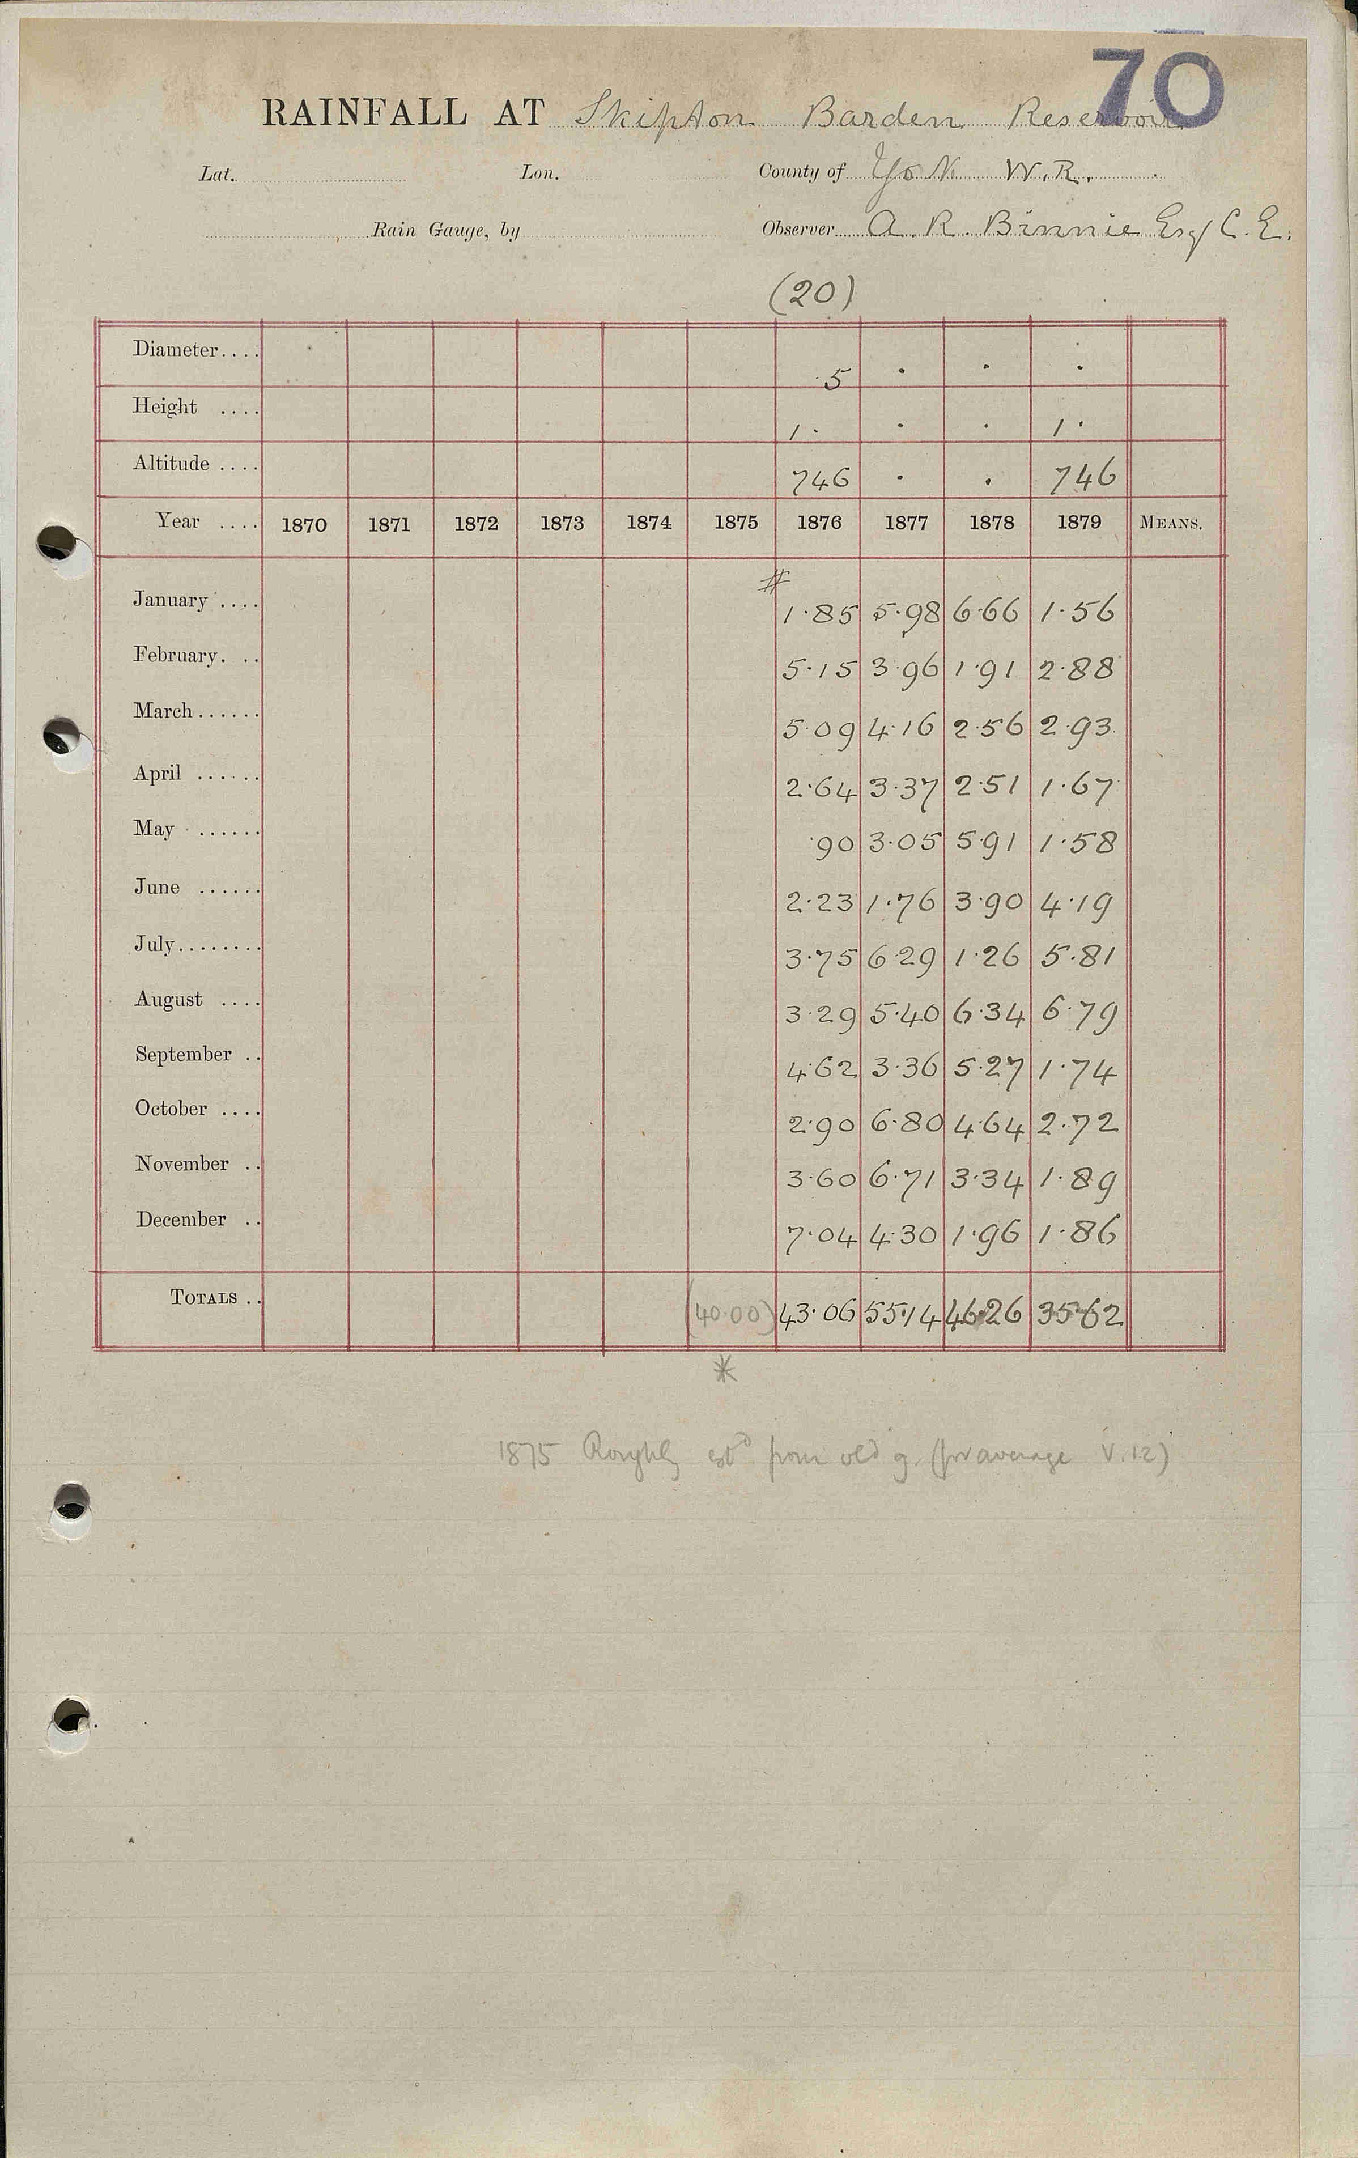 70
RAINFALL AT Skipton Barden Reservoir
Lat. Lon. County of York W.R.
Rain Gauge, by Observer A. R. Binnie Esq C. E.
(20)
Diameter.... 5 . . .
Height .... 1. . . 1.
Altitude .... 746 . . 746
Year .... 1870 1871 1872 1873 1874 1875 1876 1877 1878 1879 MEANS.
#
January .... 1.85 5.98 6.66 1.56
February. .. 5.15 3.96 1.91 2.88
March...... 5.09 4.16 2.56 2.93
April ...... 2.64 3.37 2.51 1.67
May ...... .90 3.05 5.91 1.58
June ...... 2.23 1.76 3.90 4.19
July........ 3.75 6.29 1.26 5.81
August .... 3.29 5.40 6.34 6.79
September .. 4.62 3.36 5.27 1.74
October .... 2.90 6.80 4.64 2.72
November .. 3.60 6.71 3.34 1.89
December .. 7.04 4.30 1.96 1.86
TOTALS .. (40.00) 43.06 55.14 46.26 35.62
*
1875 Roughly estd from old g. (for average V.12)